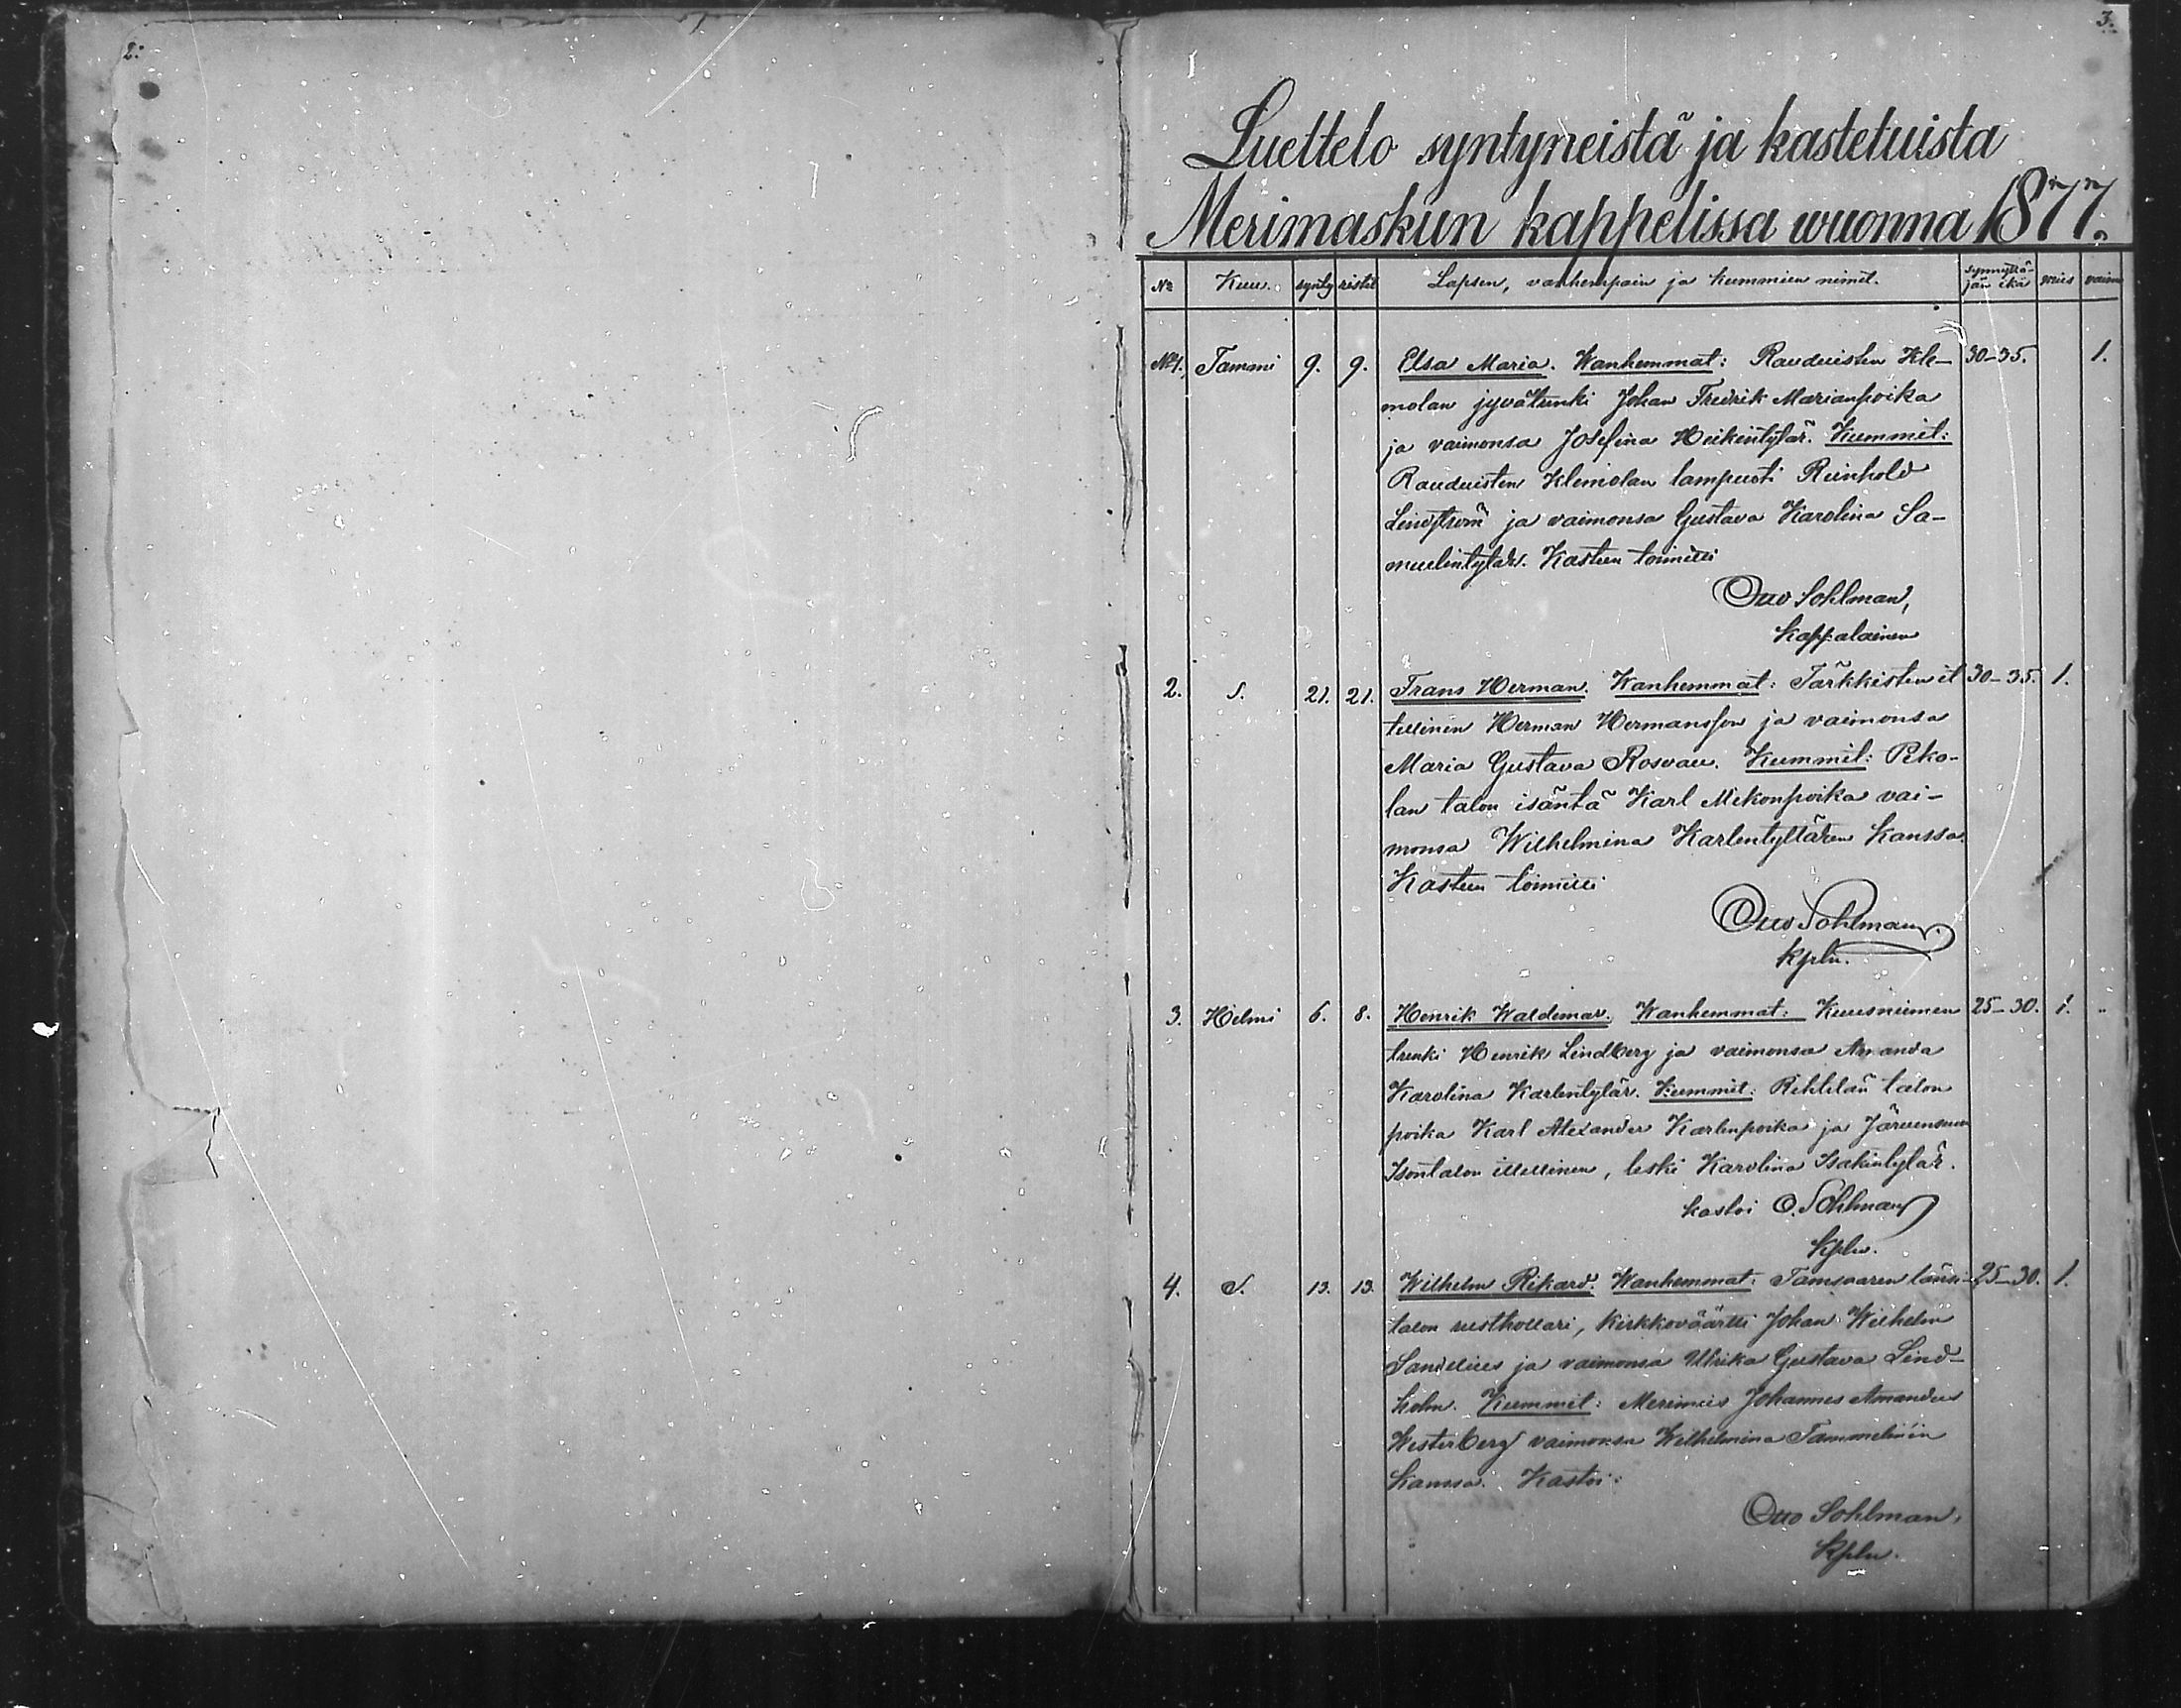 2.
3.
Luettelo syntyneistä ja kastetuista
Merimaskun kappelissa wuonna 1877.
No Kuu. synty ristit Lapsen, vanhempain ja kummien nimet. synnyttä-jän ikä mies vaimo
No 1. Tammi 9. 9. Elsa Maria. Wanhemmat: Rauduisten Kle- 30-35. 1.
molan jyvätrenki Johan Fredrik Marianpoika
ja vaimonsa Josefina Heikintytär. Kummit:
Rauduisten Klemolan lampuoti Reinhold
Lindström ja vaimonsa Gustava Karolina Sa-
muelintytär. Kasteen toimitti
Otto Sohlman,
kappalainen
2. S. 21. 21. Frans Herman. Wanhemmat: Tärkkisten it 30-35. 1.
tellinen Herman Hermansson ja vaimonsa
Maria Gustava Rosvall. Kummit: Peko-
lan talon isäntä Karl Mikonpoika vai-
monsa Wilhelmina Karlentyttären kanssa.
Kasteen toimitti
Otto Sohlman.
kpln.
3. Helmi 6. 8. Henrik Waldemar. Wanhemmat: Kuusniemen 25-30. 1. "
trenki Henrik Lindberg ja vaimonsa Amanda
Karolina Karlentytär. Kummit: talon
poika Karl Alexander Karlenpoika ja Järvensuun
Isontalon itsellinen, leski Karolina Isakintytär.
kastoi O. Sohlman
kpln.
4. S. 13. 13. Wilhelm Rikard. Wanhemmat: Tamsaaren länsi- 25-30. 1.
talon rusthollari, kirkkoväärtti Johan Wilhelm
Sandelius ja vaimonsa Ulrika Gustava Lind-
holm. Kummit: Merimies Johannes Amandus
Westerberg vaimonsa Wilhelmina Tammelinin
kanssa. Kastoi:
Otto Sohlman,
kpln.